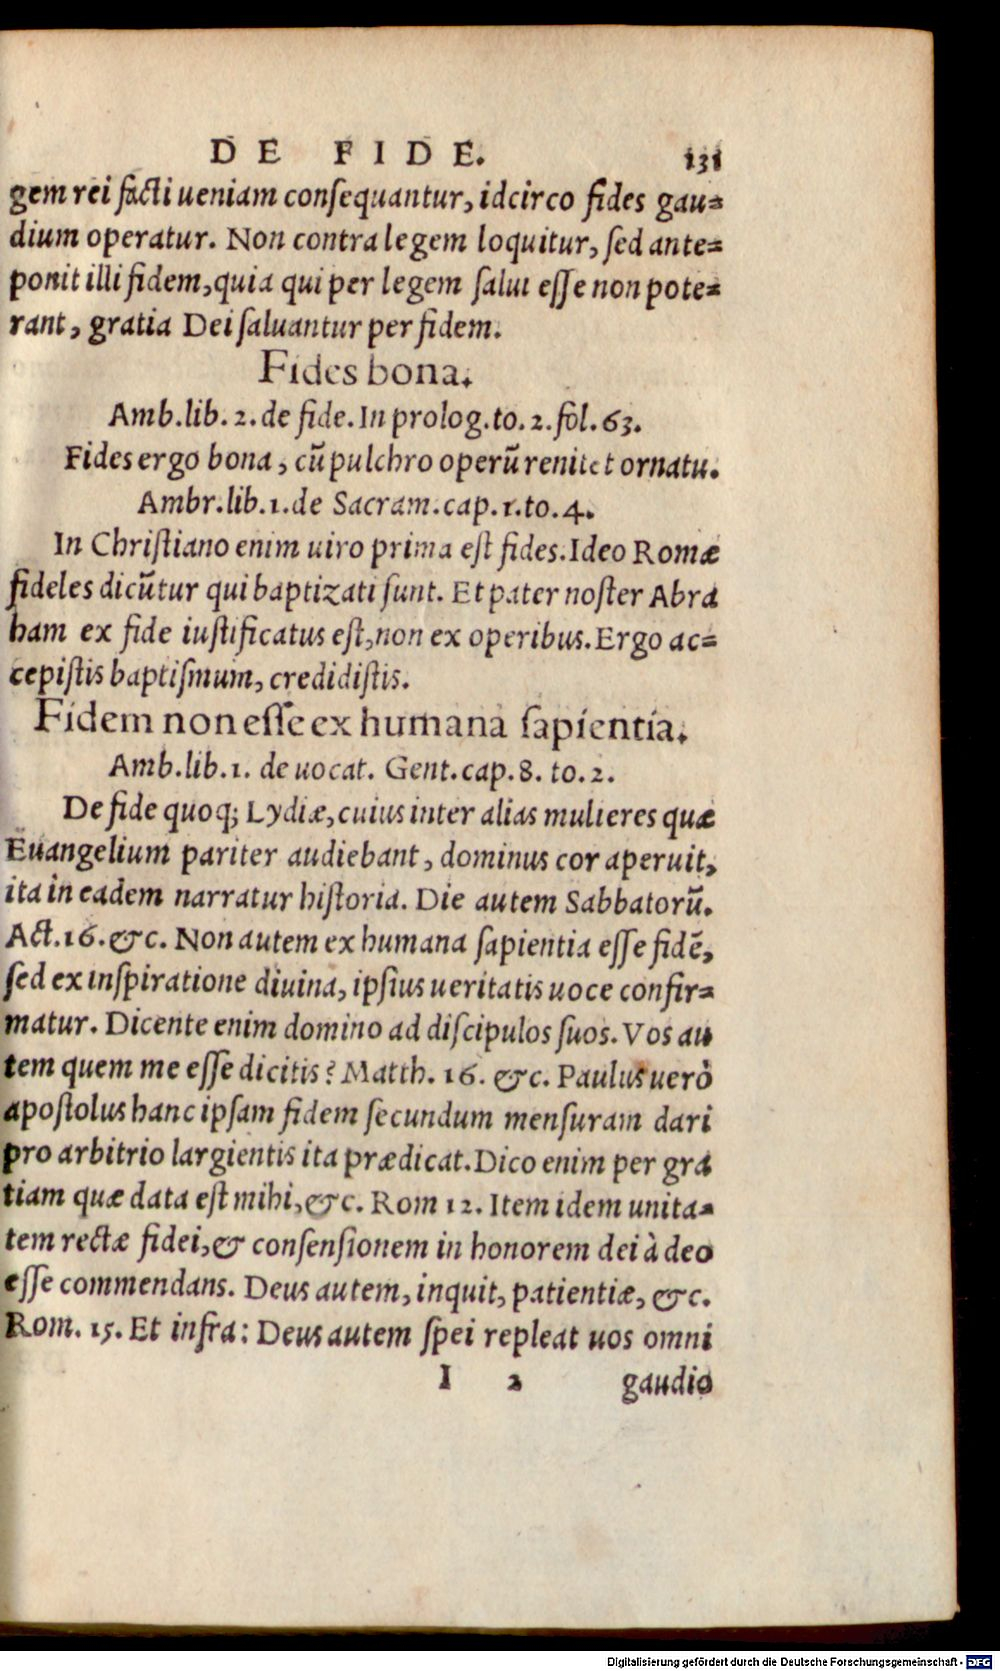 DE FIDE. 131
gem rei facti ueniam consequantur, idcirco fides gau=
dium operatur. Non contra legem loquitur, sed ante=
ponit illi fidem, quia qui per legem salui esse non pote=
rant, gratia Dei saluantur per fidem.
Fides bona.
Amb. lib. 2. de fide. In prolog. to. 2. fol. 63.
Fides ergo bona, cū pulchro operū renitet ornatu.
Ambr. lib. 1. de Sacram. cap. 1. to. 4.
In Christiano enim uiro prima est fides. Ideo Romæ
fideles dicūtur qui baptizati sunt. Et pater noster Abra
ham ex fide iustificatus est, non ex operibus. Ergo ac=
cepistis baptismum, credidistis.
Fidem non esse ex humana sapientia.
Amb. lib. 1. de uocat. Gent. cap. 8. to. 2.
De fide quoq; Lydiæ, cuius inter alias mulieres quæ
Euangelium pariter audiebant, dominus cor aperuit,
ita in eadem narratur historia. Die autem Sabbatorū.
Act. 16. &c. Non autem ex humana sapientia esse fidē,
sed ex inspiratione diuina, ipsius ueritatis uoce confir=
matur. Dicente enim domino ad discipulos suos. Vos au
tem quem me esse dicitis? Matth. 16. &c. Paulus uerò
apostolus hanc ipsam fidem secundum mensuram dari
pro arbitrio largientis ita prædicat. Dico enim per gra
tiam quæ data est mihi, &c. Rom 12. Item idem unita=
tem rectæ fidei, & consensionem in honorem dei à deo
esse commendans. Deus autem, inquit, patientiæ, &c.
Rom. 15. Et infra: Deus autem spei repleat uos omni
I 2 gaudio
Digitalisierung gefördert durch die Deutsche Forschungsgemeinschaft - DFG